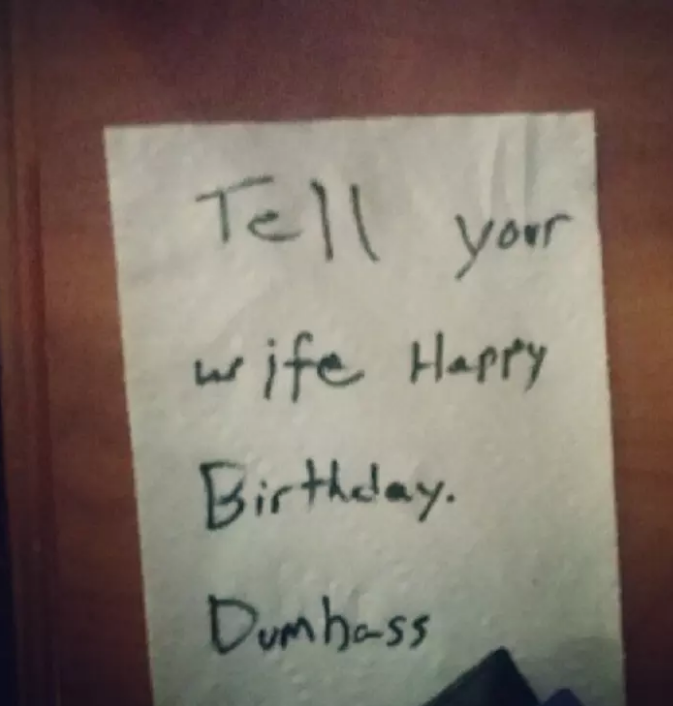 Tell your
wife Happy
Birthday.
Dumbass